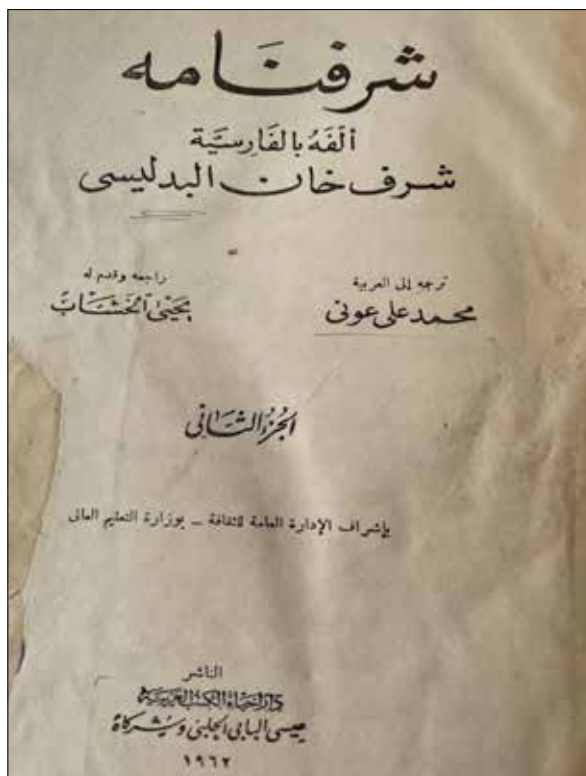 شرفنَامه
ألّفَهُ بالفَارِسيَّة
شرف خان البدليسى
ترجمه إلى العربية
محمد على عونى
راجعه وقدم له
يحيىٰ الخشَّاب
الجُزءُ الثَّانى
بإشراف الإدارة العامة للثقافة ــ بوزارة التعليم العالى
الناشر
دار إحياء الكتب العربية
عيسى البابى الحلبى وشركاة
١٩٦٢